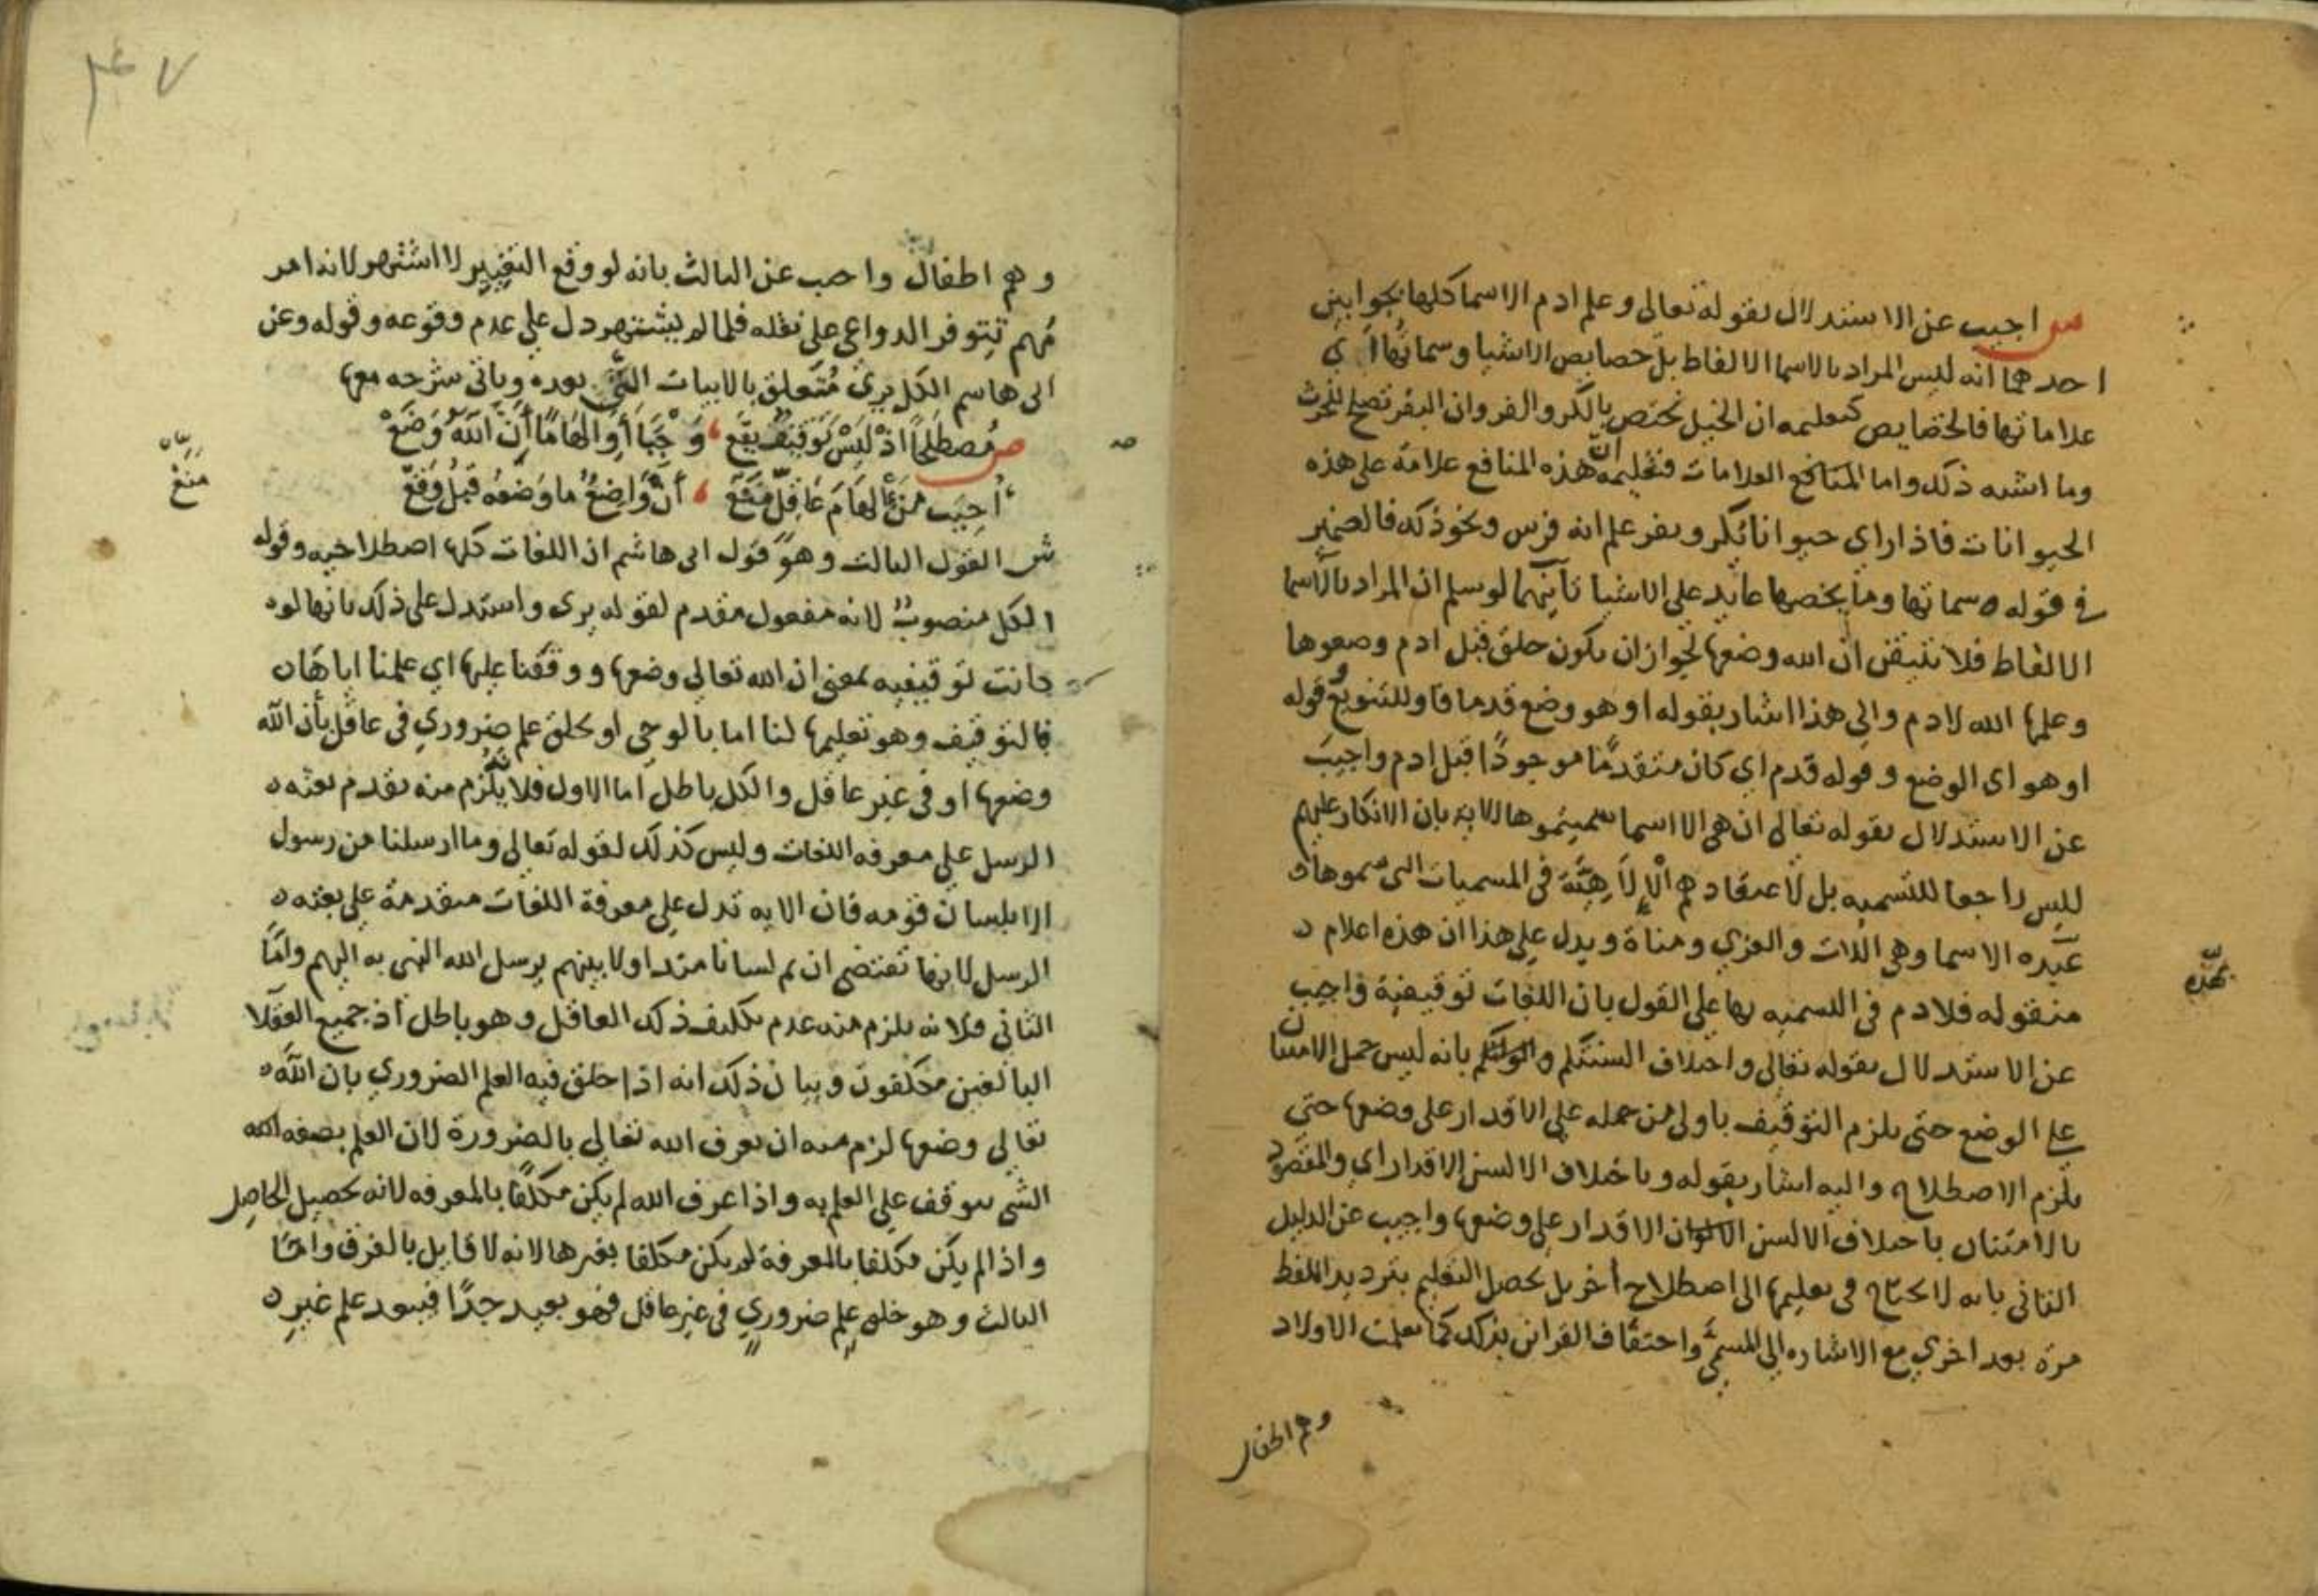 ش اجيب عن الاستدلال بقوله تعالى وعلم ادم الاسما كلها بجوابين
احدهما انه ليس المراد بالاسما الالفاظ بل خصايص الاشيا وسماتها اي
علاماتها فالخصايص كتعليمه ان الخيل تختص بالكر والفر وان البقر تصلح للحرث
وما اشبه ذلك واما المنافع العلامات فتعليمه ان هذه المنافع علامة على هذه
الحيوانات فاذا راي حيوانا يكر ويفر علم انه فرس ونحو ذلك فالضمير
في قوله وسماتها وما يخصها عايد على الاشيا ثانيهما لو سلم ان المراد بالاسما
الالفاظ فلا نتيقن ان الله وضعها لجواز ان يكون خلق قبل ادم وضعوها
وعلمها الله لادم والى هذا اشار بقوله او هو وضع قدما فاو للتنويع وقوله
او هو اي الوضع وقوله قدم اي كان متقدما موجودا قبل ادم واجيب
عن الاستدلال بقوله تعالى ان هي الا اسما سميتموها الاية بان الانكار عليهم
لليس راجعا للتسميه بل لاعتقادهم الالاهية في المسميات التي سموها
عبده الاسما وهي اللات والعزي ومناة ويدل على هذا ان هذه اعلام
منقوله فلا دم في التسميه بها على القول بان اللغات توقيفية واجيب
عن الاستدلال بقوله تعالى واختلاف السنتكم والوانكم بانه ليس حمل الامتنان
على الوضع حتى يلزم التوقيف باولى من حمله على الاقدار على وضعها حتى
يلزم الاصطلاح واليه اشار بقوله وباختلاف الالسن الاقدار اي والمقصود
بالامتنان باختلاف الالسن الالوان الاقدار على وضعها واجيب عن الدليل
الثاني بانه لا يحتاج في تعليمها الى اصطلاح اخر بل يحصل التعليم بترديد اللفظ
مرة بعد اخري مع الاشاره الى المسمى واحتفاف القراين بذلك كما تعلمت الاولاد
وهم اطفال
بهذه
وهم اطفال واجيب عن الثالث بانه لو وقع التغيير لا اشتهر لانه امر
مهم تتوفر الدواعي على نقله فلما لم يشتهر دل على عدم وقوعه وقوله وعن
ابي هاشم الكل يرى متعلق بالابيات التي بعده وياتي شرحه معها
ص مصطلحا اذ ليس توقيف يقع ، وحيا او الهاما ان الله وضع
اجيب من الهام عاقل منع ، ان واضع ما وضعه قبل وقع
منع
ش القول الثالث وهو قول ابي هاشم ان اللغات كلها اصطلاحيه وقوله
الكل منصوب لانه مفعول مقدم لقوله يرى واستدل على ذلك بانها لو
كانت توقيفيه بمعنى ان الله تعالى وضعها ووقفنا عليها اي علمنا اياها
فالتوقيف وهو تعليمها لنا اما بالوحي او بخلق علم ضروري في عاقل بان الله
وضعها او في غير عاقل والكل باطل اما الاول فلانه يلزم منه تقدم بعثه
الرسل على معرفه اللغات وليس كذلك لقوله تعالى وما ارسلنا من رسول
الا بلسان قومه فان الايه تدل على معرفة اللغات متقدمة على بعثه
الرسل لانها تقتضي ان ثم لسانا متداولا بينهم يرسل الله النبي به اليهم واما
الثاني فلانه يلزم منه عدم تكليف ذلك العاقل وهو باطل اذ جميع العقلا
البالغين مكلفون وبيان ذلك انه اذا خلق فيه العلم الضروري بان الله
تعالى وضعها لزم منه ان يعرف الله تعالى بالضرورة لان العلم بصفه
الشي يتوقف على العلم به واذا عرف الله لم يكن مكلفا بالمعرفه لانه تحصيل الحاصل
واذا لم يكن مكلفا بالمعرفة لم يكن مكلفا بغيرها لانه لا قايل بالفرق واما
الثالث وهو خلق علم ضروري في غير عاقل فهو بعيد جدا فيبعد علم غير